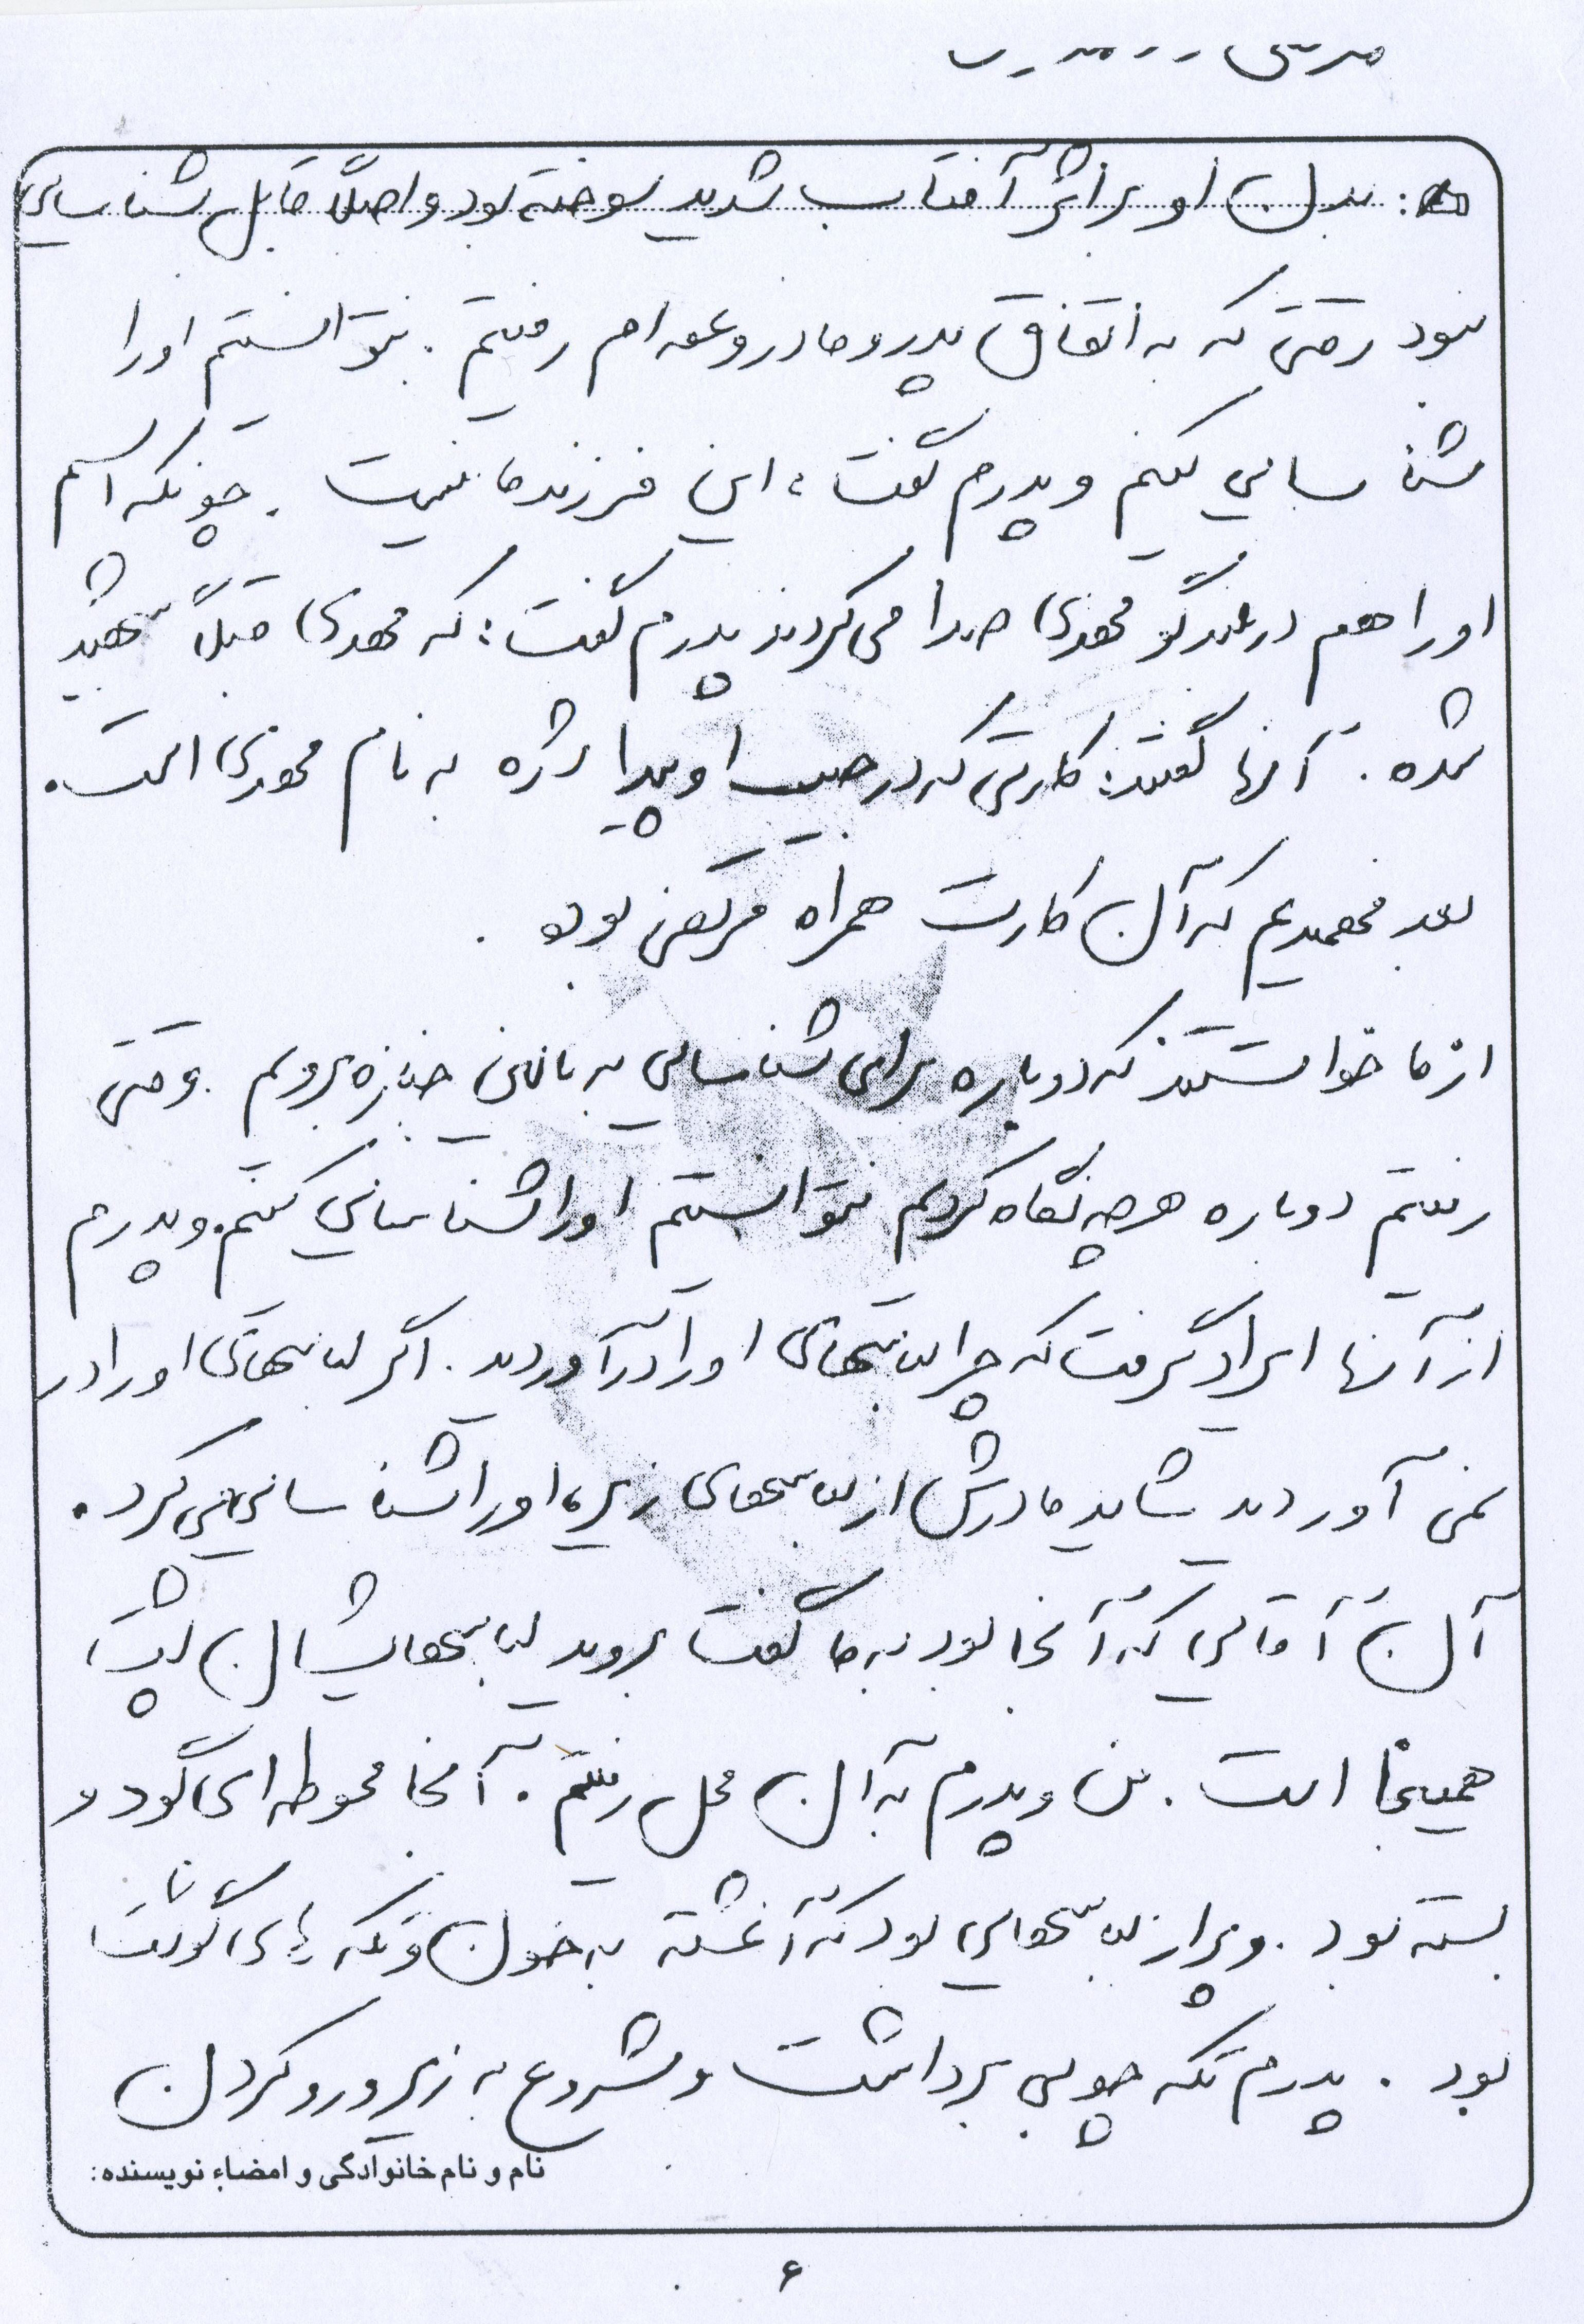 بدن او براثر آفتاب شدید سوخته بود و اصلاً قابل شناسایی
نبود وقتی که به اتفاق پدر و مادر و عمه ام رفتیم . نتوانستیم او را
شناسایی کنیم و پدرم گفت ، این فرزند ما نیست . چونکه اسم
او را هم در بلندگو مهدی صدا می کردند پدرم گفت : که مهدی قبلاً شهید
شده . آنها گفتند : کارتی که در جیب او پیدا شده به نام مهدی است .
بعد فهمیدیم که آن کارت همراه مرتضی بود .
از ما خواستند که دوباره برای شناسایی به بالای جنازه برویم . وقتی
رفتیم دوباره هرچه نگاه کردیم نتوانستیم او را شناسایی کنیم . و پدرم
از آنها ایراد گرفت که چرا لباسهای او را درآوردید . اگر لباسهای او را در
نمی آوردید شاید مادرش از لباسهای زیر ، او را شناسایی می کرد .
آن آقایی که آنجا بود به ما گفت بروید لباسهایشان پشت
همینجا است . من و پدرم به آن محل رفتیم . آنجا محوطه ای گود و
بسته بود . و پر از لباسهایی بود که آغشته به خون و تکه های گوشت
بود . پدرم تکه چوبی برداشت و شروع به زیر و رو کردن
نام و نام خانوادگی و امضاء نویسنده:
۶